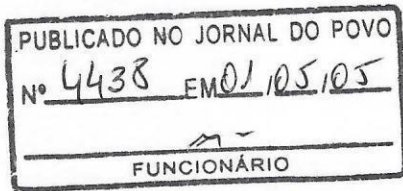 PUBLICADO NO JORNAL DO POVO
Nº 4438 EM 01/05/05
FUNCIONÁRIO